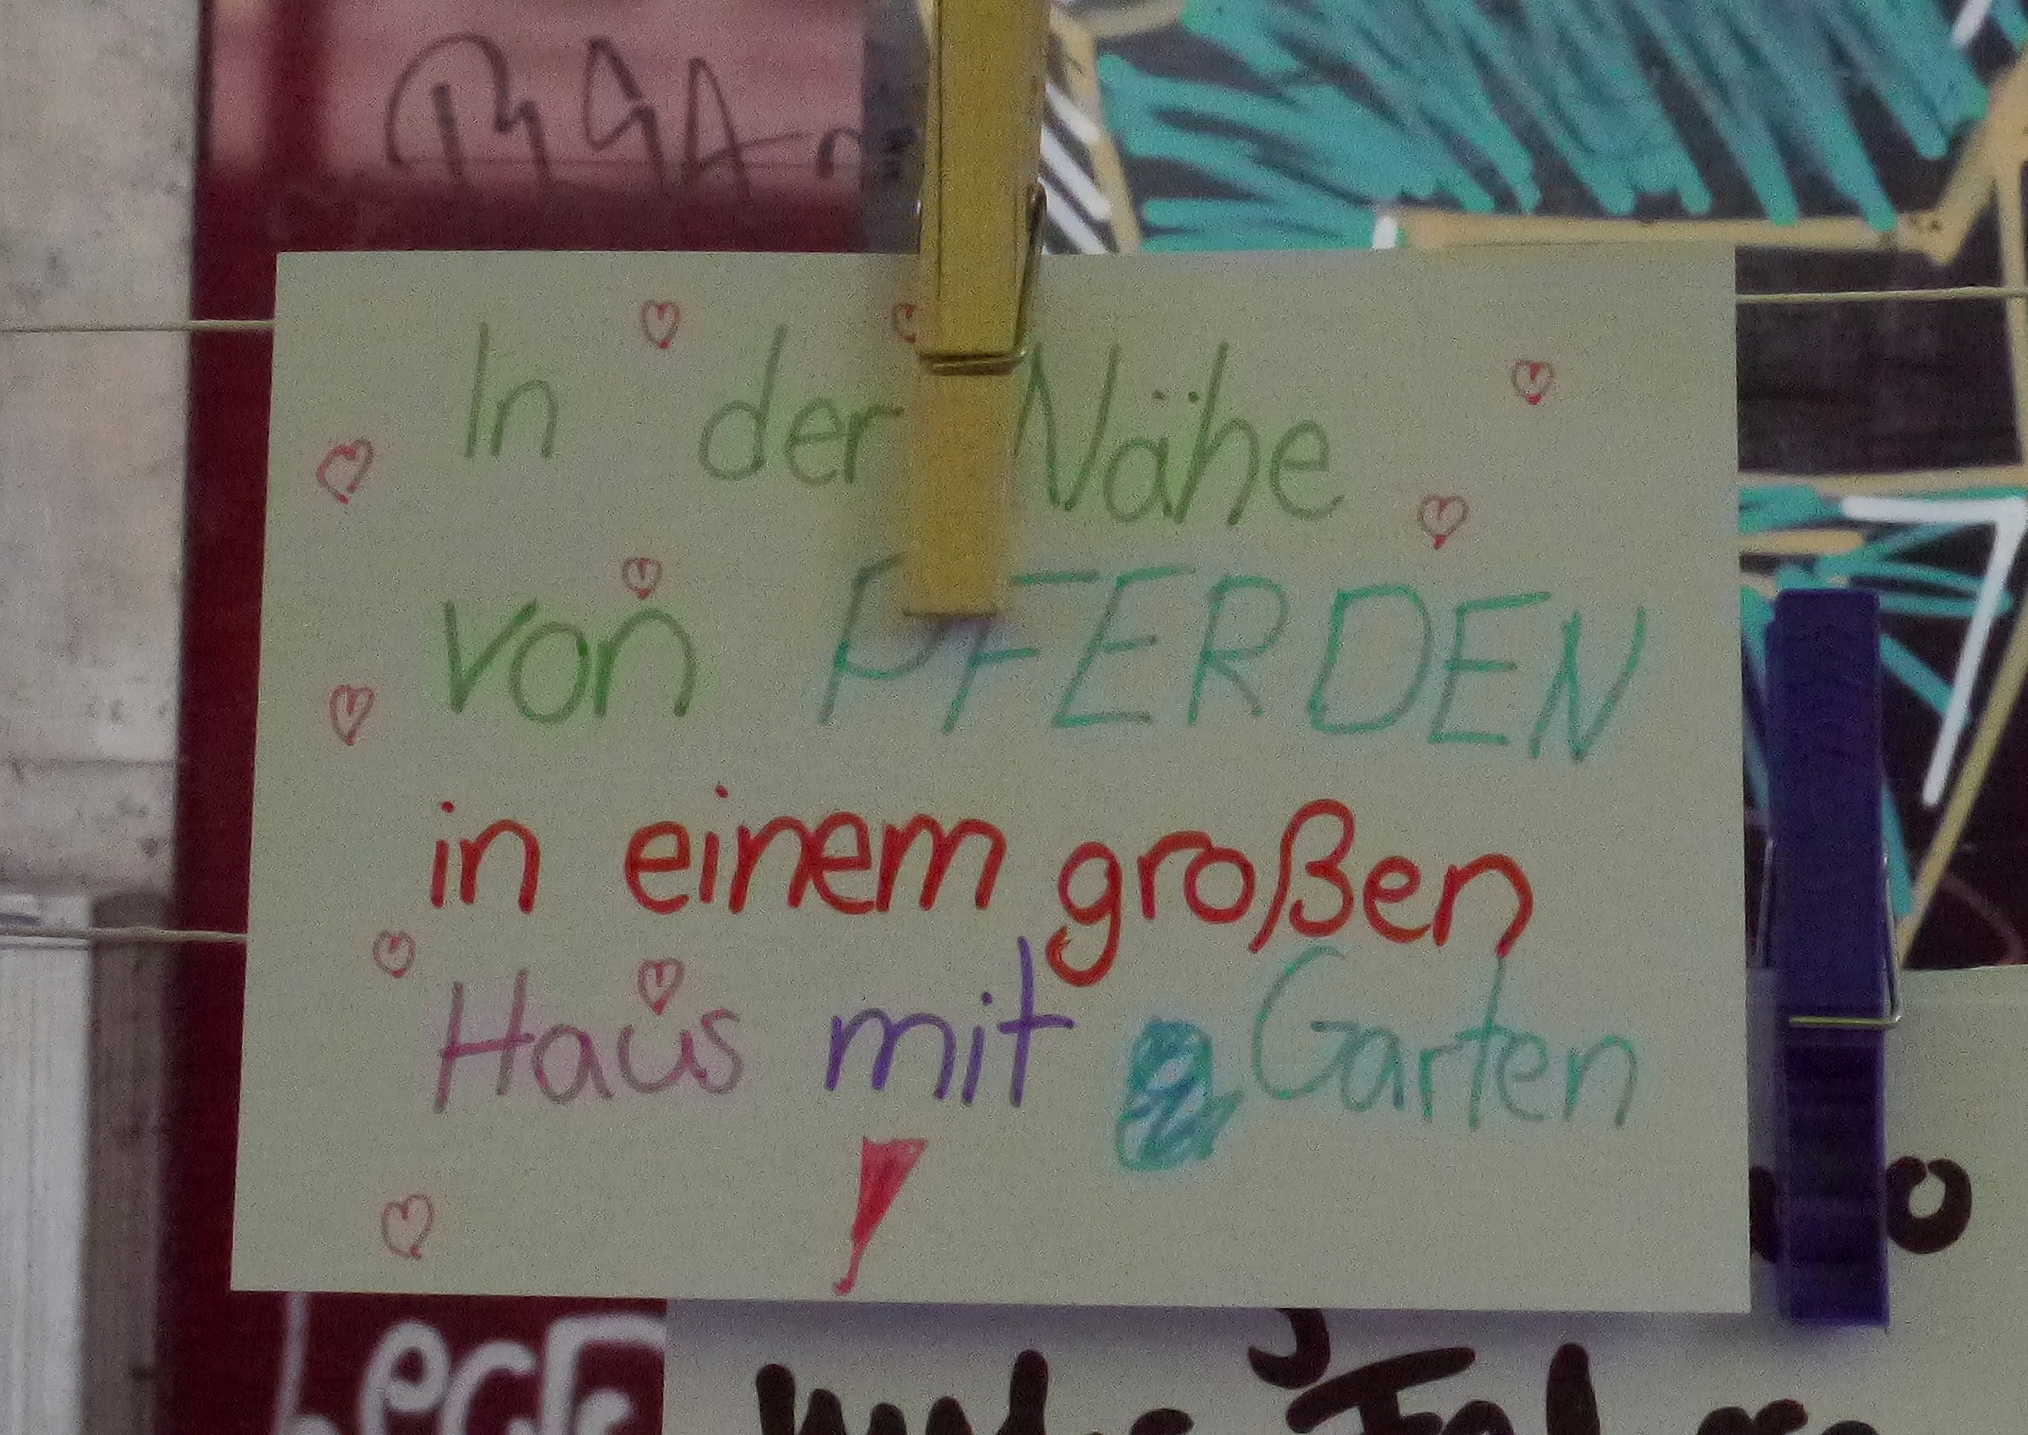 In der Nähe
von PFERDEN
in einem großen
Haus mit Garten
!